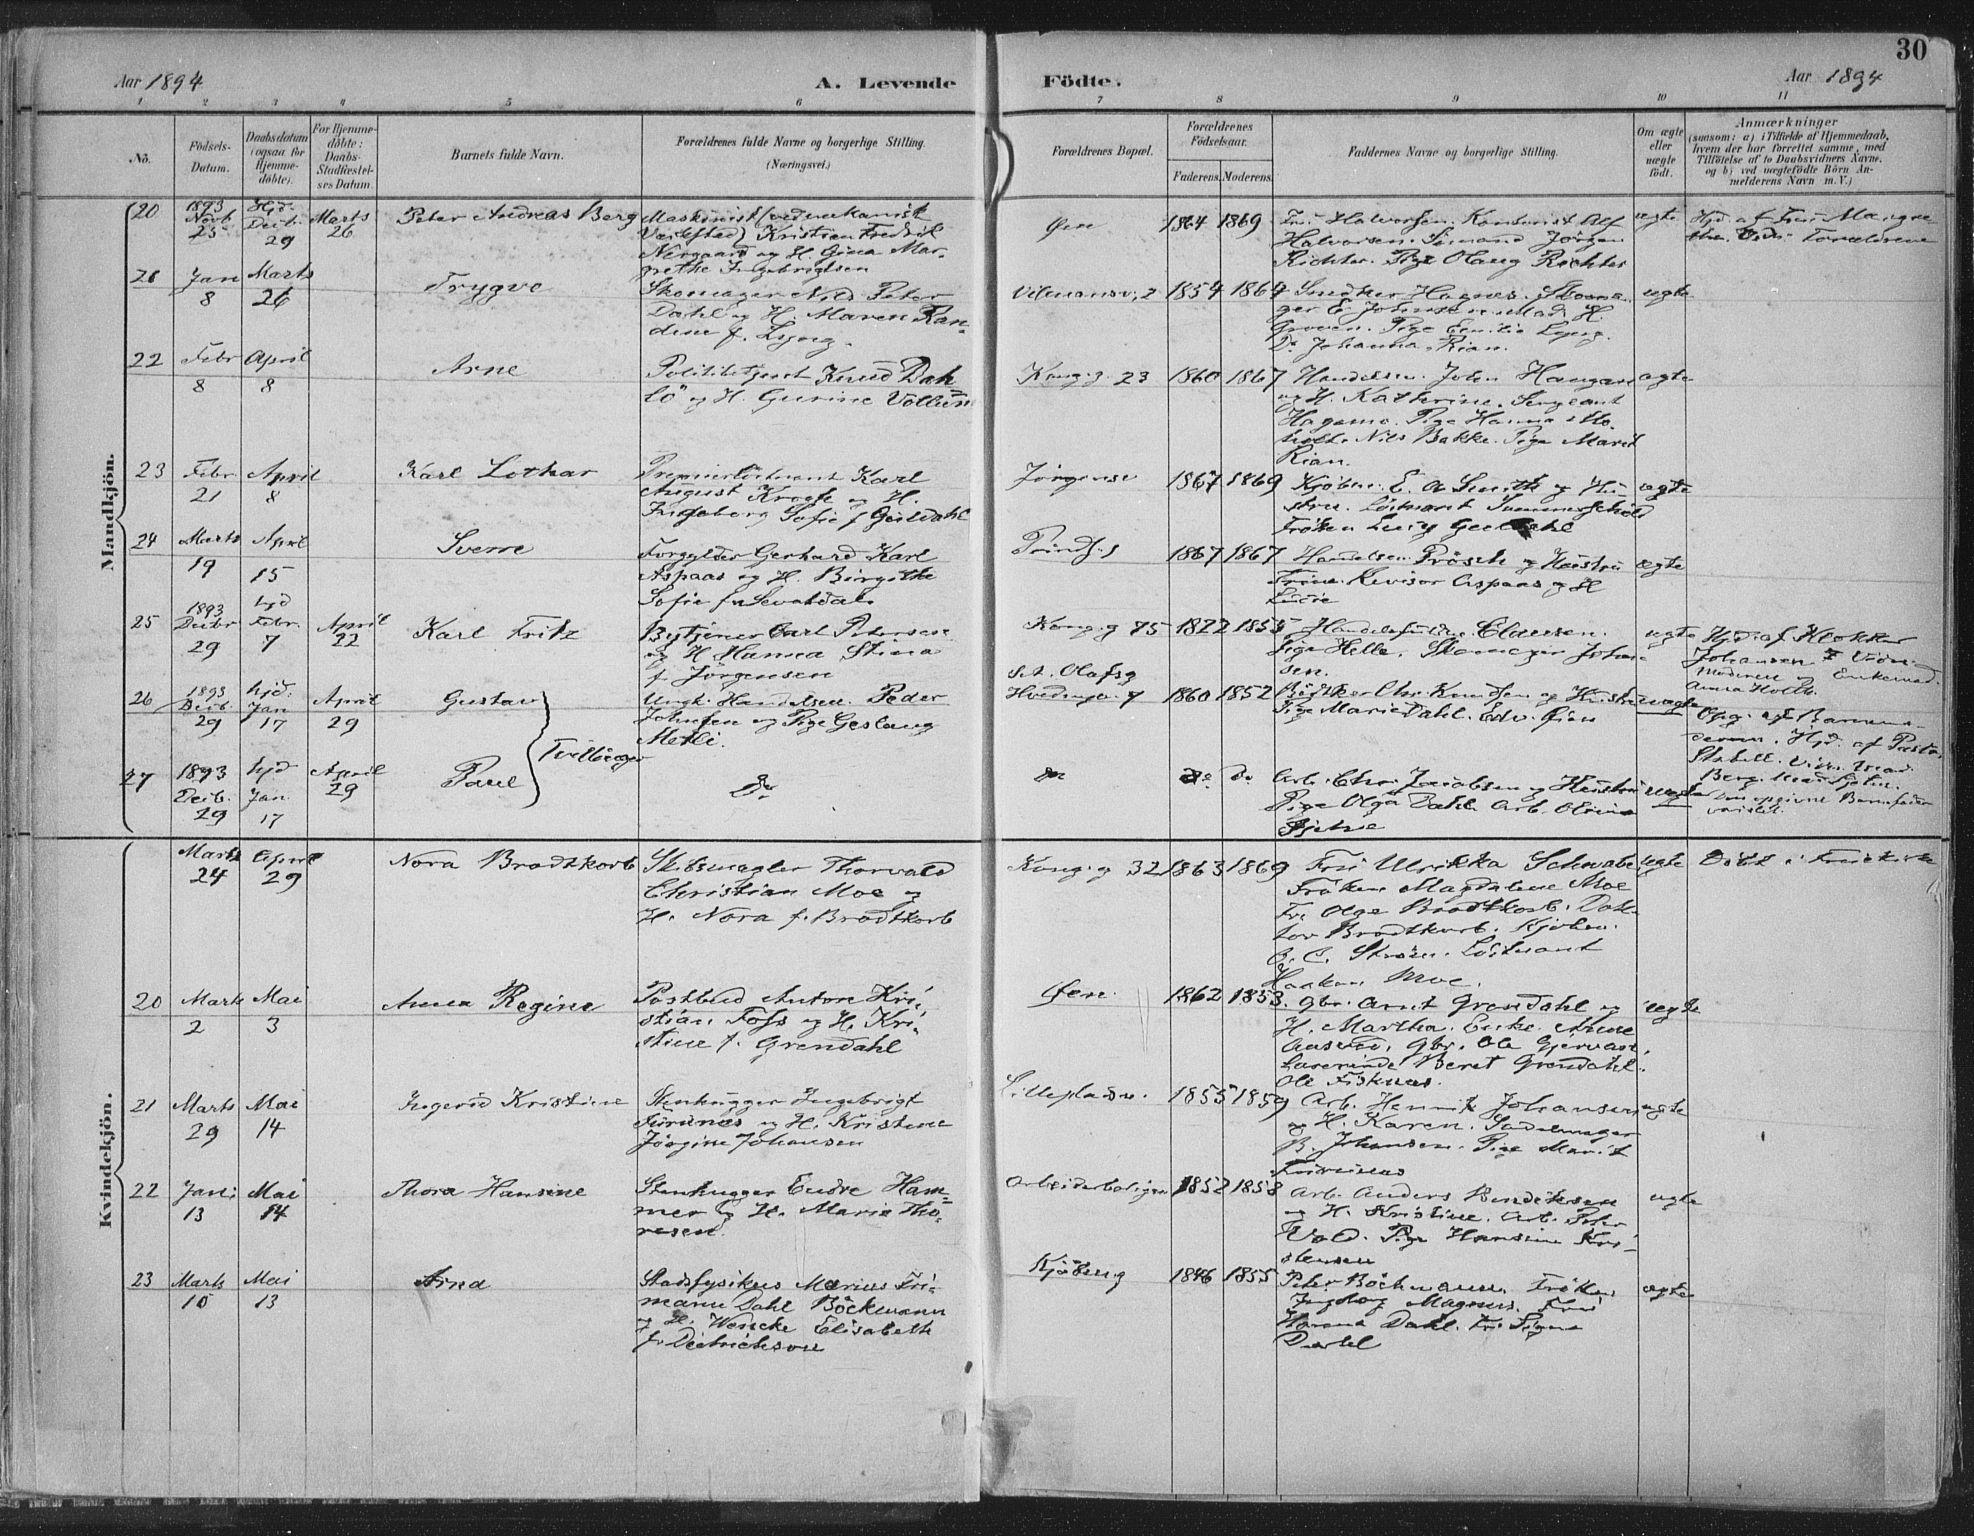 Aar 1894
A. Levende
Födte.
Aar 1894
30
1 2 3 4 5 6 7 8 9 10 11
No.
Födsels-
Datum.
Daabsdatum
(ogsaa for
Hjemme-
döbte).
For Hjemme-
döbte:
Daabs-
Stadfæstel-
ses Datum.
Barnets fulde Navn.
Forældrenes fulde Navne og borgerlige Stilling.
(Næringsvei.)
Forældrenes Bopæl.
Forældrenes
Födselsaar.
Faderens. Moderens.
Faddernes Navne og borgerlige Stilling.
Om ægte
eller
uægte
födt.
Anmærkninger
(saasom: a) i Tilfælde af Hjemmedaab,
hvem der har forrettet samme, med
Tilföielse af to Daabsvidners Navne,
og b) ved uægtefödte Börn An-
melderens Navn m. V.)
Mandkjön.
20
1893
Novb.
25
Hjd.
Decb.
29
Marts
26
Peter Andreas Berg
Maskinist (ved mekanisk
Værksted) Kristian Fredrik
Nergaard og H. Gina Mar-
grethe Ingebrigtsen
Øen
1864 1869
Fru Halvorsen. Kontorist Alf
Halvorsen. Sömand Jörgen
Richter. Pige Olaug Richter
ægte
Hjd. af Fru
Forældrene
21
Jan
8
Marts
26
Trygve
Skomager Nils Peter
Dahl og H. Maren Ran-
dine f. Lyng.
1854 1864
Snedker Hagnæs. Skoma-
ger E. Johnsen. Mad. H.
Pige Emilie Lyng.
Do Johanna Rian.
ægte
22
Febr
8
April
8
Arne
Politibetjent Knud Dah-
lö og H. Gurine Vollum
Kong.g. 23
1860 1867
Handelsm. John Haugan
og H. Kathrine. Sergeant
Hagemo. Pige Hanna Mo-
holt. Nils Bakke. Pige Marit
Rian.
ægte
23
Febr
21
April
8
Karl Lothar
Premierlöitnant Karl
August Krogh og H.
Ingeborg Sofie f. Geildahl
1867 1869
Kjöbm. E. A. Smith og Hu-
stru. Löitnant Sommerschield
Fröken Lucy
ægte
24
Marts
19
April
15
Sverre
Forgylder Gerhard Karl
Aspaas og H. Birgitte
Sofie f.
Prindsg
1867 1867
Handelsm. Prösch og Hustru
Trine. Revisor Aspaas og H
Lucie
ægte
25
1893
Decbr
29
hjd
Febr.
7
April
22
Karl Fritz
Bytjener Carl Petersen
og H Hanna Stina
f. Jörgensen
Kong.g 75
1822 1855
Clausen.
Pige Helle. Skomager Johan-
sen.
ægte
Hjd. af Klokker
Johansen. Vidn.
og Enkemad.
Anna Holte.
26
1893
Decb.
29
hjd.
Jan
17
April
29
Gustav
Tvillinger
Ungk. Handelsm. Peder
Johnsen og Pige Geslaug
Metli.
St. Olafsg
1860 1852
Bödker Chr. Knudsen og Hustru
Pige Marie Dahl. Edv. Øien
uægte
Opg. af Barnemo-
deren. Hjd. af Pastor
Stabell. Vidn. Mad.
Berg.
27
1893
Decb.
29
hjd
Jan.
17
April
29
Paul
Do
do
do do
Arb. Chr. Jacobsen og Hustru
Pige Olga Dahl. Arb. Olaus
uægte
Den opgivne Barnefader
Kvindekjön.
Marts
24
April
29
Nora Brodtkorb
Skibsmægler Thorvald
Christian Moe og
H. Nora f. Brodtkorb
Kong.g 32
1863 1869
Fru Ulrikka Schwabe
Fröken Magdalene Moe
Fr. Olga Brodtkorb. Dok-
tor Brodtkorb. Kjöbm.
O. C. Ström. Löitnant
Haakon Moe.
ægte
Döbt i Frikirke
20
Marts
2
Mai
3
Anna Regine
Postbud Anton Kri-
stian Foss og H. Kri-
stine f. Grendahl
Øen.
1862 1853
Gbr. Arnt Grendahl og
H. Martha. Enke Anne
Aasved. Gbr. Ole Gjervan.
Lærerinde Beret Grendahl.
Ole Fisknæs.
ægte
21
Marts
29
Mai
14
Ingerid Kristine
Stenhugger Ingebrigt
Furunes og H. Kristine
Jörgine Johansen
Lilleplads.
1855 1859
Arb. Henrik Johansen
og H. Karen. Sadelmager
B. Johansen. Pige Marit
Furunes
ægte
22
Jan.
13
Mai
14
Thora Hansine
Stenhugger Endre Ham-
mer og H. Maria Tho-
resen
Arbeiderboligen
1852 1858
Arb. Anders Bendiksen
og H. Kristine. Arb. Peter
Vold. Pige Hansine Kri-
stensen
ægte
23
Marts
10
Mai
13
Arna
Stadsfysikus Marius Fri-
mann Dahl Böckmann
og H. Wencke Elisabeth
f. Dietrichson
Kjöbmg
1846 1855
Peter Böckmann. Fröken
Ingeborg Magnus. Frøk.
Hanna Dahl. Fr. Signe
Dahl
ægte